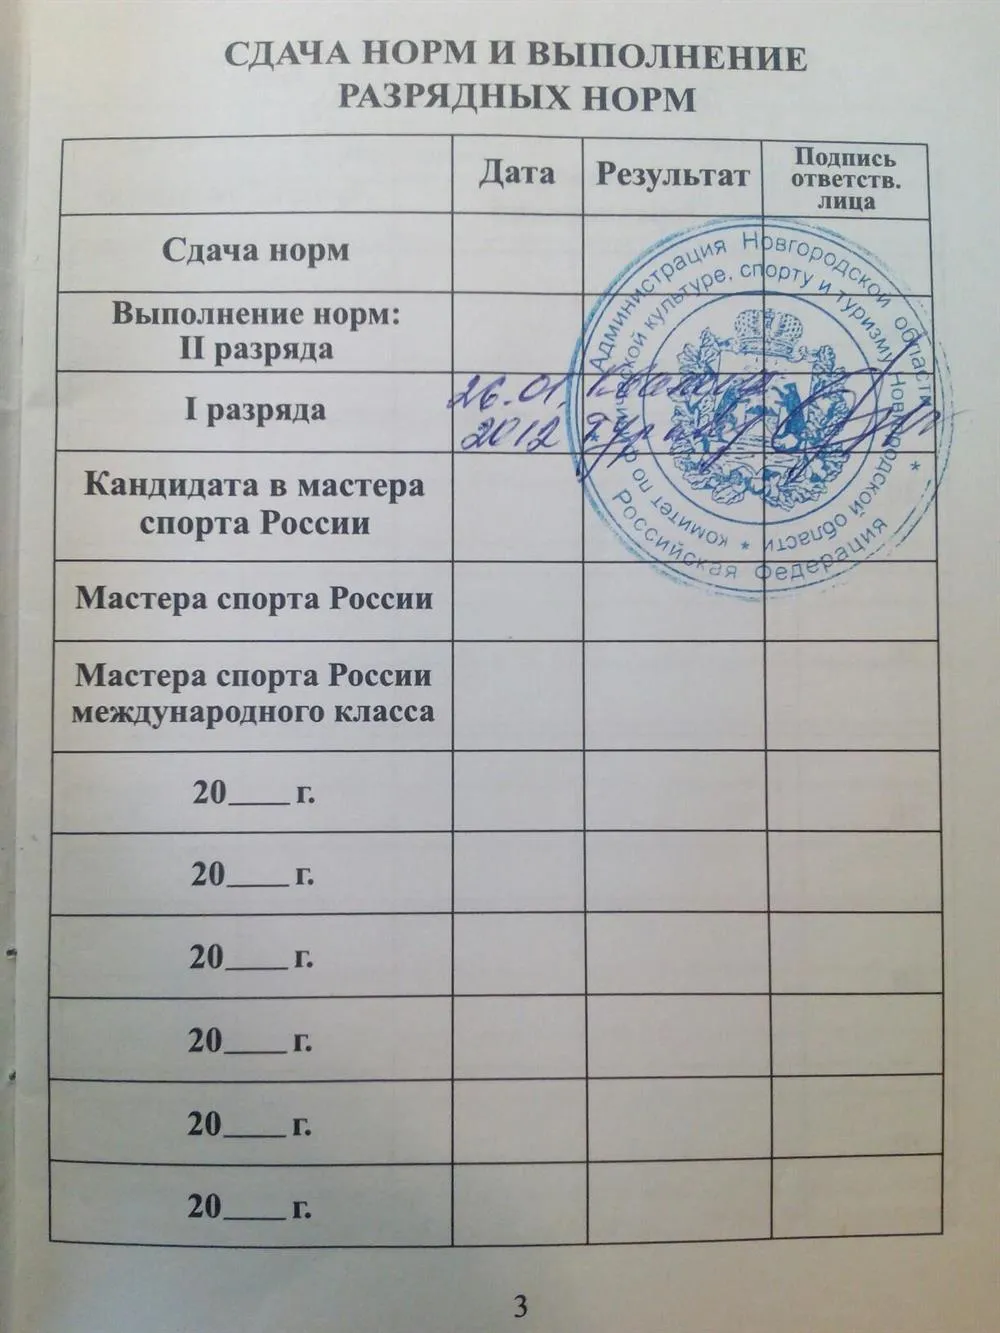 СДАЧА НОРМ И ВЫПОЛНЕНИЕ
РАЗРЯДНЫХ НОРМ
Дата
Результат
Подпись
ответств.
лица
Сдача норм
Выполнение норм:
II разряда
I разряда
26.01.
2012
Кандидата в мастера
спорта России
Мастера спорта России
Мастера спорта России
международного класса
20____ г.
20____ г.
20____ г.
20____ г.
20____ г.
20____ г.
Администрация Новгородской области
Российская Федерация
комитет по физической культуре, спорту и туризму Новгородской области
3